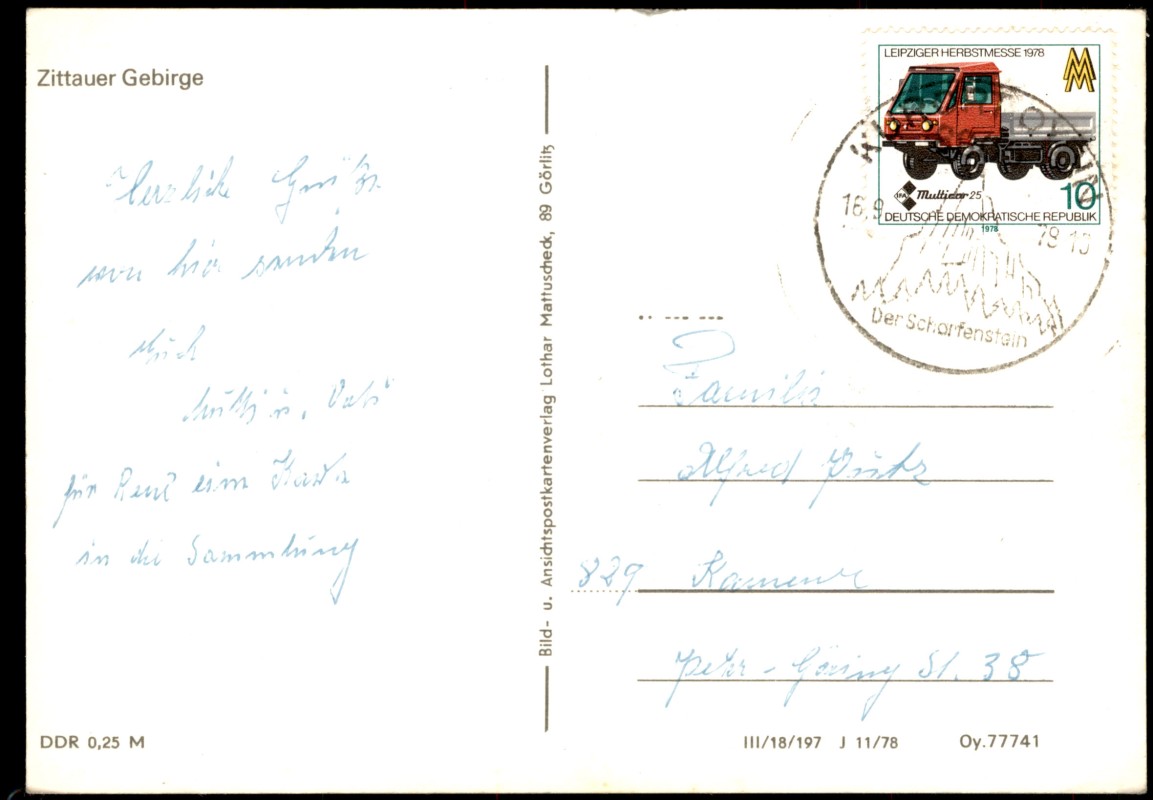 Zittauer Gebirge
Herzliche Grüße
von hier senden
Euch
Mutti u. Vati
für René eine Karte
in die Sammlung
DDR 0,25 M
Bild- u. Ansichtspostkartenverlag Lothar Mattuscheck, 89 Görlitz
LEIPZIGER HERBSTMESSE 1978
MM
IFA Multicar 25
10
DEUTSCHE DEMOKRATISCHE REPUBLIK
1978
KURORT OYBIN
16.9
79-10
Der Scharfenstein
Familie
Alfred
829 Kamenz
Peter - Göring St. 38
III/18/197 J 11/78 Oy.77741